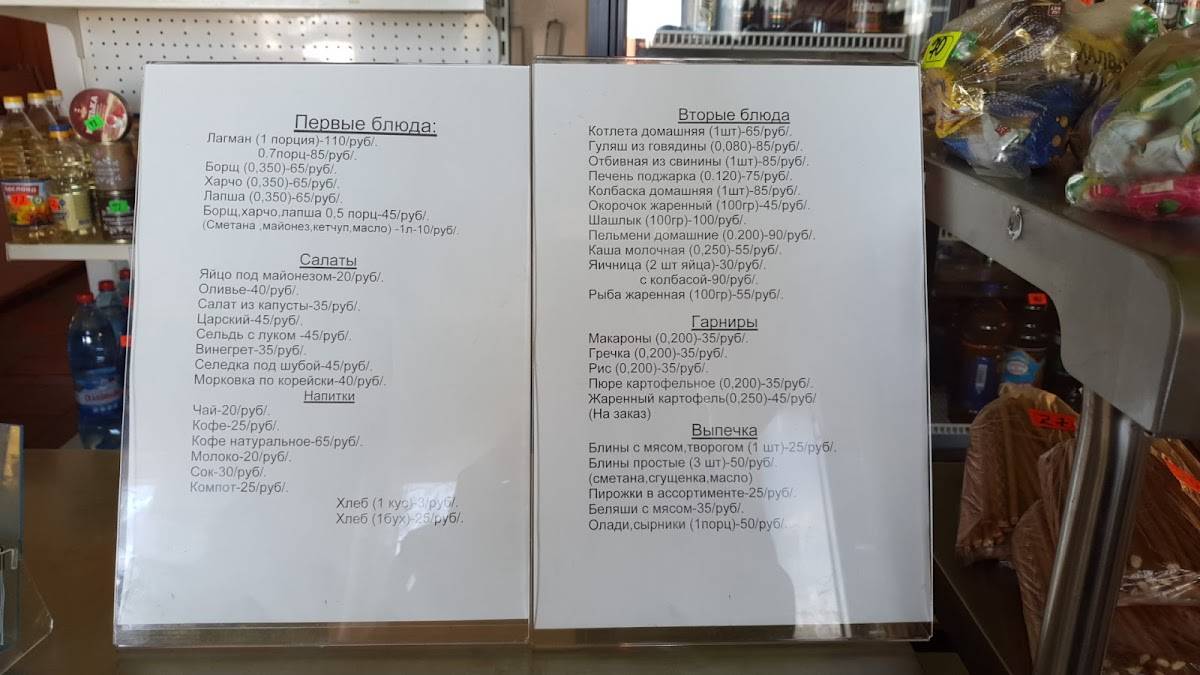 Первые блюда:
Лагман (1 порция)-110/руб/.
0.7порц-85/руб/.
Борщ (0,350)-65/руб/.
Харчо (0,350)-65/руб/.
Лапша (0,350)-65/руб/.
Борщ,харчо,лапша 0,5 порц-45/руб/.
(Сметана ,майонез,кетчуп,масло) -1л-10/руб/.
Салаты
Яйцо под майонезом-20/руб/.
Оливье-40/руб/.
Салат из капусты-35/руб/.
Царский-45/руб/.
Сельдь с луком -45/руб/.
Винегрет-35/руб/.
Селедка под шубой-45/руб/.
Морковка по корейски-40/руб/.
Напитки
Чай-20/руб/.
Кофе-25/руб/.
Кофе натуральное-65/руб/.
Молоко-20/руб/.
Сок-30/руб/.
Компот-25/руб/.
Хлеб (1 кус)-3/руб/.
Хлеб (1бух)-25/руб/.
Вторые блюда
Котлета домашняя (1шт)-65/руб/.
Гуляш из говядины (0,080)-85/руб/.
Отбивная из свинины (1шт)-85/руб/.
Печень поджарка (0.120)-75/руб/.
Колбаска домашняя (1шт)-85/руб/.
Окорочок жаренный (100гр)-45/руб/.
Шашлык (100гр)-100/руб/.
Пельмени домашние (0.200)-90/руб/.
Каша молочная (0,250)-55/руб/.
Яичница (2 шт яйца)-30/руб/.
с колбасой-90/руб/.
Рыба жаренная (100гр)-55/руб/.
Гарниры
Макароны (0,200)-35/руб/.
Гречка (0,200)-35/руб/.
Рис (0,200)-35/руб/.
Пюре картофельное (0,200)-35/руб/.
Жаренный картофель(0,250)-45/руб/
(На заказ)
Выпечка
Блины с мясом,творогом (1 шт)-25/руб/.
Блины простые (3 шт)-50/руб/.
(сметана,сгущенка,масло)
Пирожки в ассортименте-25/руб/.
Беляши с мясом-35/руб/.
Олади,сырники (1порц)-50/руб/.
70
ХАЛВА